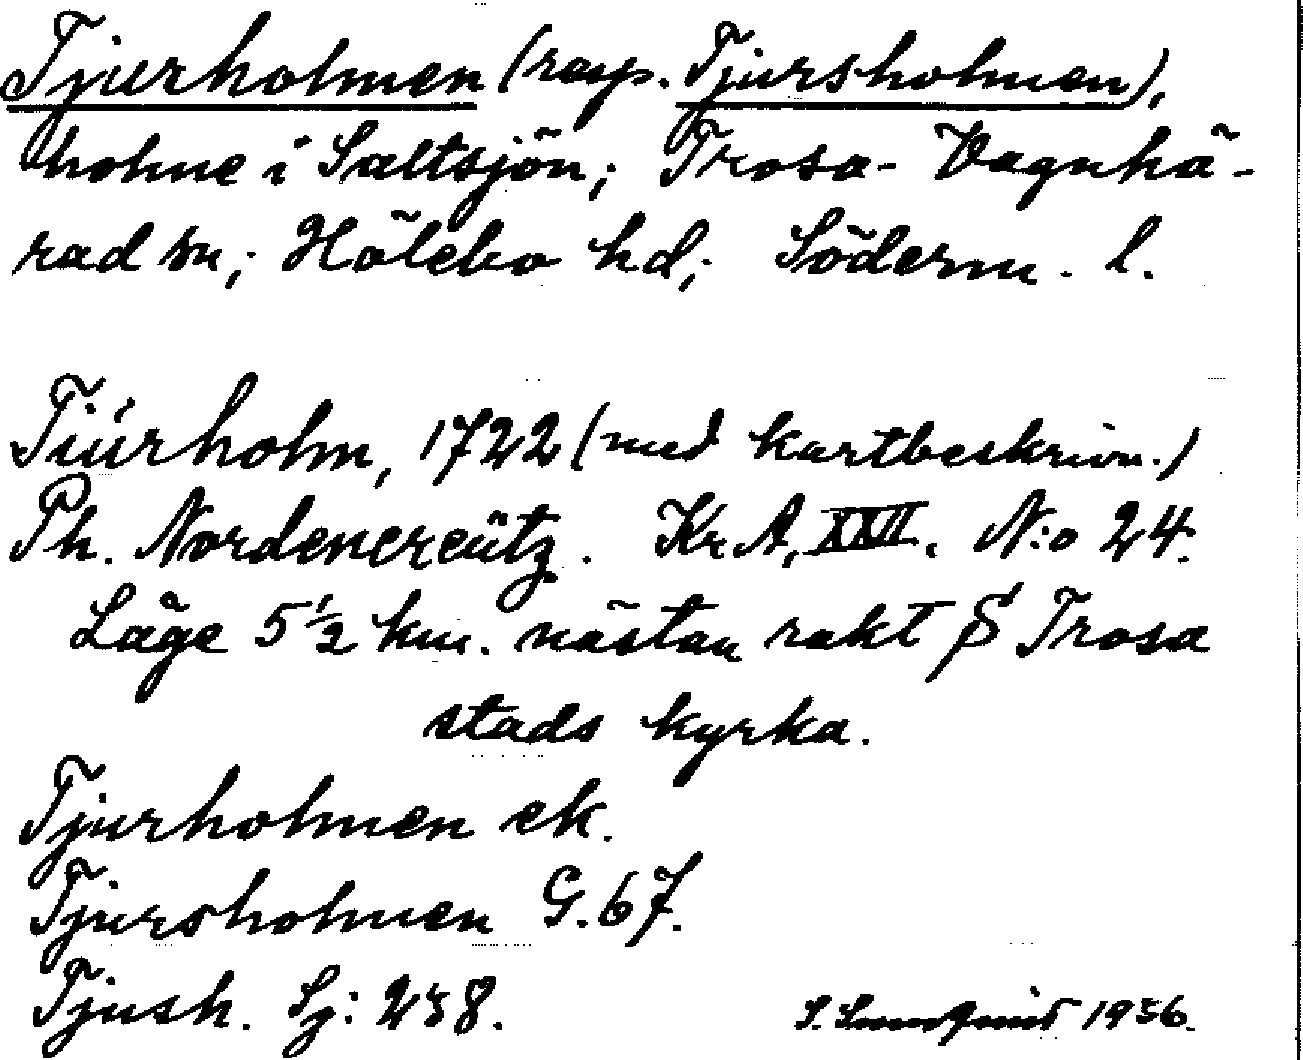 Tjurholmen (resp. Tjursholmen),
holme i Saltsjön; Trosa-Vagnhä-
rad sn; Hölebo hd; Söderm. l.
Tiúrholm, 1722 (med kartbeskrivn.)
Ph. Nordencreütz. Kr.A, XXII. N:o 24.
Läge 5 1/2 km. nästan rakt S Trosa
stads kyrka.
Tjurholmen ek.
Tjursholmen G. 67.
Tjush. Sj: 238.
S. 1936.